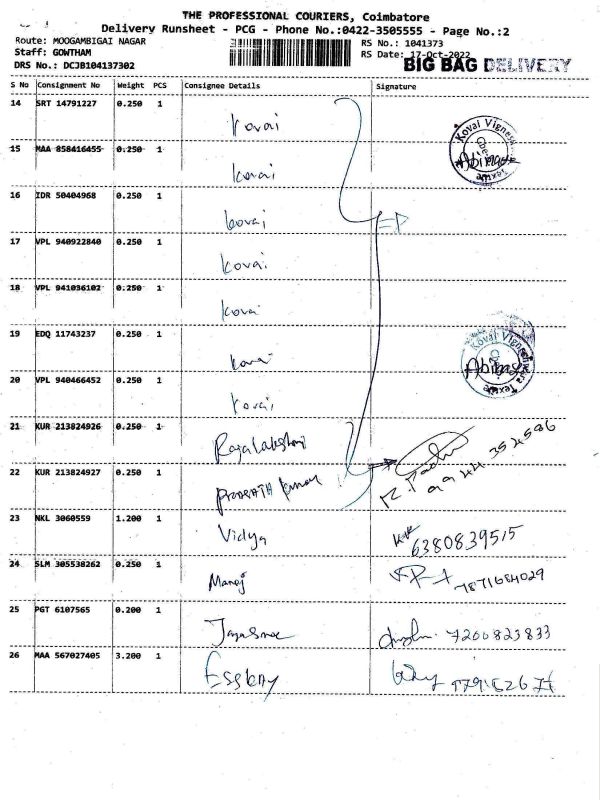 THE PROFESSIONAL COURIERS, Coimbatore
Delivery Runsheet - PCG - Phone No.:0422-3505555 - Page No.:2
Route: MOOGAMBIGAI NAGAR RS No.: 1041373
Staff: GOWTHAM RS Date: 17-Oct-2022
DRS No.: DCJB104137302 BIG BAG DELIVERY
S No Consignment No Weight PCS Consignee Details Signature
14 SRT 14791227 0.250 1 kovai
15 MAA 858416455 0.250 1 kovai
16 IDR 50404968 0.250 1 kovai
17 VPL 940922840 0.250 1 kovai
18 VPL 941036102 0.250 1 kovai
19 EDQ 11743237 0.250 1 kovai
20 VPL 940466452 0.250 1 kovai
21 KUR 213824926 0.250 1 Rajalakshmi
22 KUR 213824927 0.250 1 9944354596
23 NKL 3060559 1.200 1 Vidya 6380839515
24 SLM 305538262 0.250 1 Manoj 7871684029
25 PGT 6107565 0.200 1 7200823833
26 MAA 567027405 3.200 1 Essbay